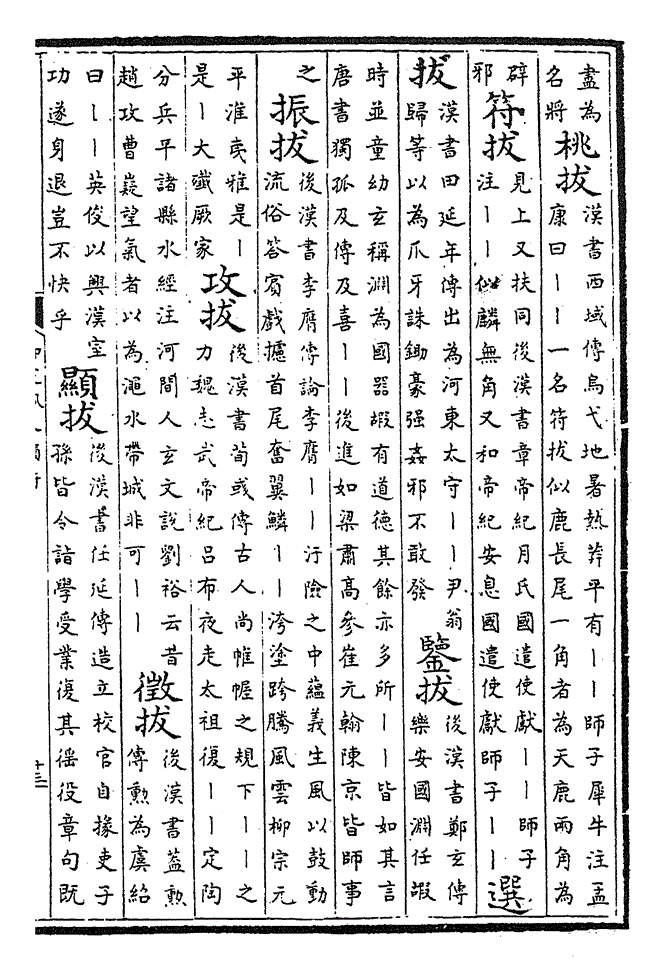 盡為
名將
桃拔
漢書西域傳烏弋地暑熱莽平有丨丨師子犀牛注孟
康曰丨丨一名符拔似鹿長尾一角者為天鹿兩角為
辟
邪
符拔
見上又扶同後漢書章帝紀月氏國遣使獻丨丨師子
注丨丨似麟無角又和帝紀安息國遣使獻師子丨丨
選
拔
漢書田延年傳出為河東太守丨丨尹翁
歸等以為爪牙誅鋤豪强姦邪不敢發
鑒拔
後漢書鄭玄傳
樂安國淵任嘏
時並童幼玄稱淵為國器嘏有道德其餘亦多所丨丨皆如其言
唐書獨孤及傳及喜丨丨後進如梁肅高參崔元翰陳京皆師事
之
振拔
後漢書李膺傳論李膺丨丨汙險之中蘊義生風以鼓動
流俗答賓戲攄首尾奮翼鱗丨丨洿塗跨騰風雲柳宗元
平淮夷雅是丨
是丨大殲厥家
攻拔
後漢書荀彧傳古人尚帷幄之規下丨丨之
力魏志武帝紀吕布夜走太祖復丨丨定陶
分兵平諸縣水經注河間人玄文說劉裕云昔
趙攻曹嶷望氣者以為澠水帶城非可丨丨
徵拔
後漢書蓋勲
傳勲為虞紹
曰丨丨英俊以興漢室
功遂身退豈不快乎
顯拔
後漢書任延傳造立校官自掾吏子
孫皆令詣學受業復其徭役章句既